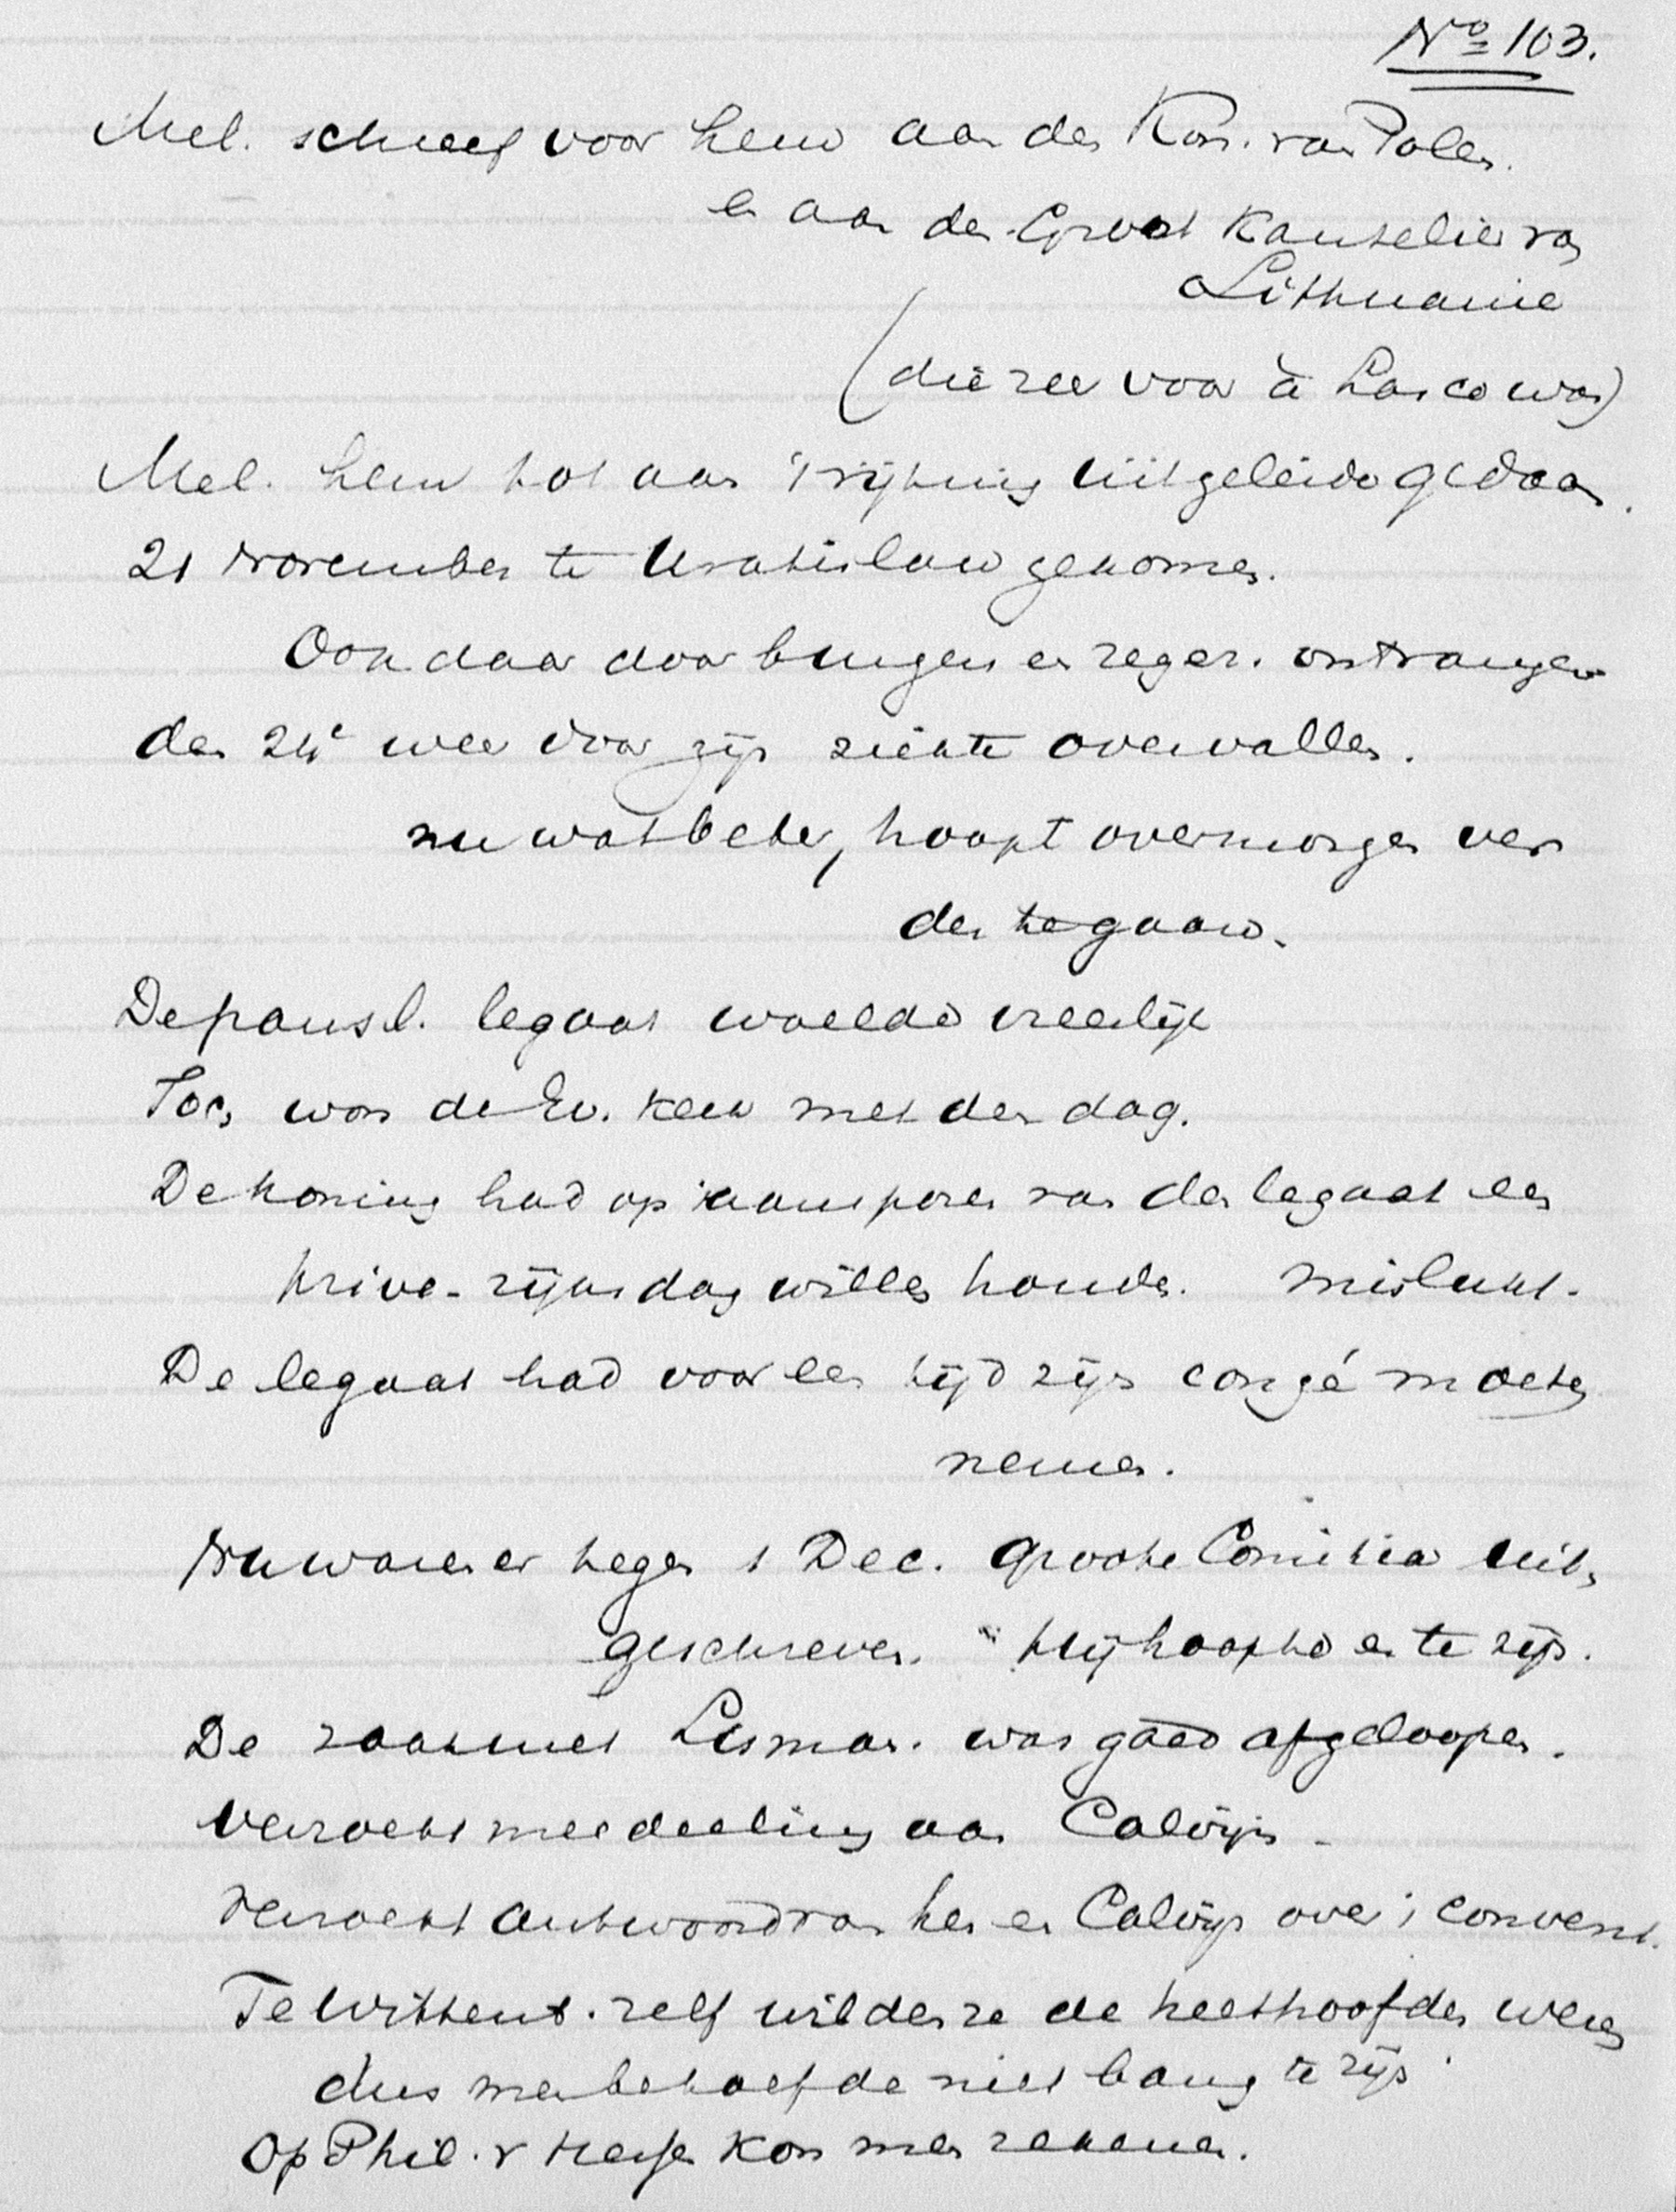 No 103.
Mel. schreef voor hem aan den Kon. van Polen.
en aan den Groot Kanselier van
Lithuanie
(die zee voor à Lasco was)
Mel. hem tot aan uitgeleide gedaan.
21 November te Uratislaw gekomen.
Ook daar door burgers en reger. ontvangen
den 24e weer door zijn ziekte overvallen.
nu wat beter, hoopt overmorgen ver
der te gaan.
De pausel. legaat woelde vreeselijk
Toch won de Ev. kerk met den dag.
De koning had op aansporen van den legaat een
prive-rijksdag willen houden. mislukt.
De legaat had voor een tijd zijn congé moeten
nemen.
Nu waren er tegen 1 Dec. groote Comitia uit,
geschreven. Hij hoopte er te zijn.
De zaak met Lismar. was goed afgeloopen.
Verzoekt mededeeling aan Calvijn.
Verzoekt antwoord van hen en Calvijn over 't convent.
Te Wittenb. zelf wilden ze de heethoofden weren
dus men behoefde niet bang te zijn.
Op Phil. v Hessen kon men rekenen.